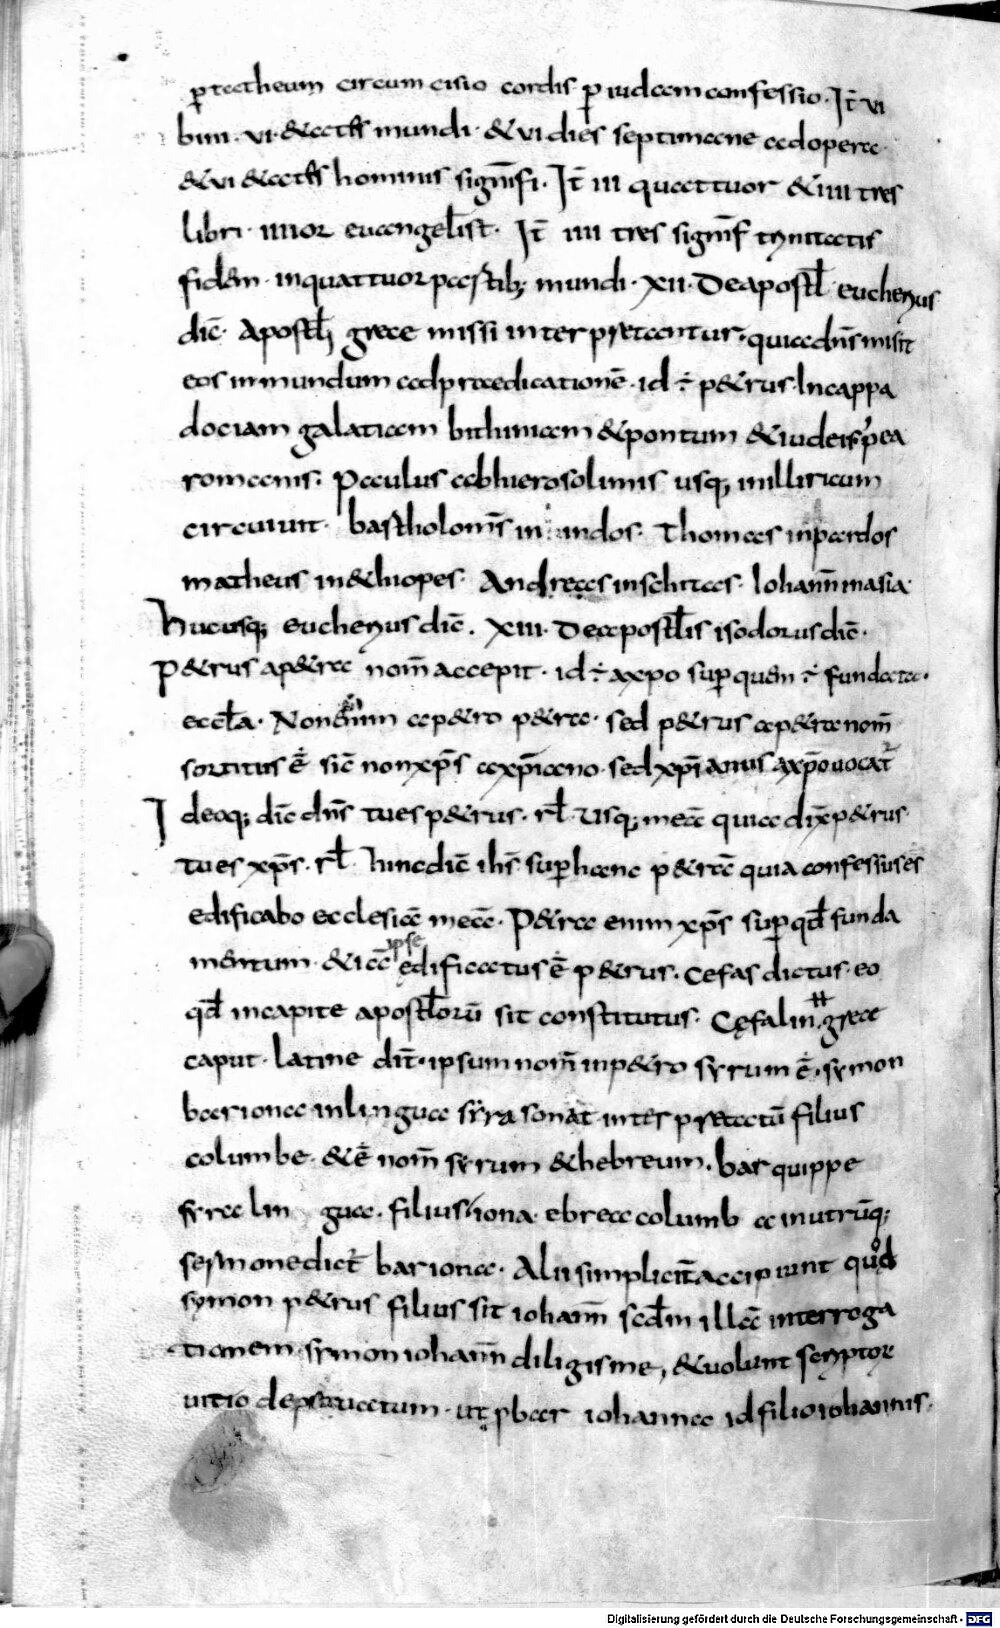 p̄ tatheum circumcisio cordis p̄ iudam confessio · It̄ vi
bini · vi · &at̄s mundi · & vi dies septimane ad opera ·
& vi &at̄s hominis signifī · It̄ iii quattuor & iiii tres
libri · iiiior euangelist̄ · It̄ iiii tres signif̄ trinitatis
fidem · in quattuor partib; mundi · XII · De apostl̄ eucherius
dic̄ · Apostl̄i grece missi interpretantur · quia dn̄s misit
eos in mundum ad praedicationē · id ÷ p&rus · In cappa
dociam galatiam bithiniam & pontum & iudeis p̄ ea
romanis · Paulus ab hierosolimis usq; in illiricum
circuiuit · bartholom̄s in indos · Thomas in partos
matheus in &hiopes · Andreas in schitas · Iohann̄ in asia ·
Hucusq; eucherius dic̄ · XIII · De apostl̄is isodorus dic̄ ·
P&rus a p&ra nom̄ accepit · id ÷ a xp̄o sup̄ quem ÷ fundata ·
eccl̄a · Non enim a p&ro p&ra · sed p&rus a p&ra nom̄
sortitus ē sic̄ non xp̄s a xp̄iano · sed xp̄ianus a xp̄o uocat̄
Ideoq; dic̄ dn̄s tu es p&rus · rl̄ · Usq; meā quia dix̄ p&rus ·
tu es xp̄s · rl̄ · hinc dic̄ ih̄s sup̄ hanc p&rā quia confessus es
edificabo ecclesiā meā · P&ra enim xp̄s sup̄ qd̄ funda
mentum · & iā ipse ędificatus ē p&rus · Cefas dictus · eo
qd̄ in capite apostl̄orū sit constitutus · Cęfalin · grece
caput · latine dit̄ · ipsum nom̄ in p&ro syrum ē · symon
bariona in lingua syra sonat interpretatū filius
columbe · & ē nom̄ syrum & hebreum · bar quippe
syra lin gua · filius iona · ebrea columb a in utrūq;
sermone dict̄ bariona · Alii simplicit̄ accipiunt quod
symon p&rus filius sit iohann̄ scd̄m illā interroga
tionem · symon iohann̄ diligis me, & uolunt scriptor
uitio deprauatum · ut p bar iohanna id filio iohannis ·
Digitalisierung gefördert durch die Deutsche Forschungsgemeinschaft · DFG